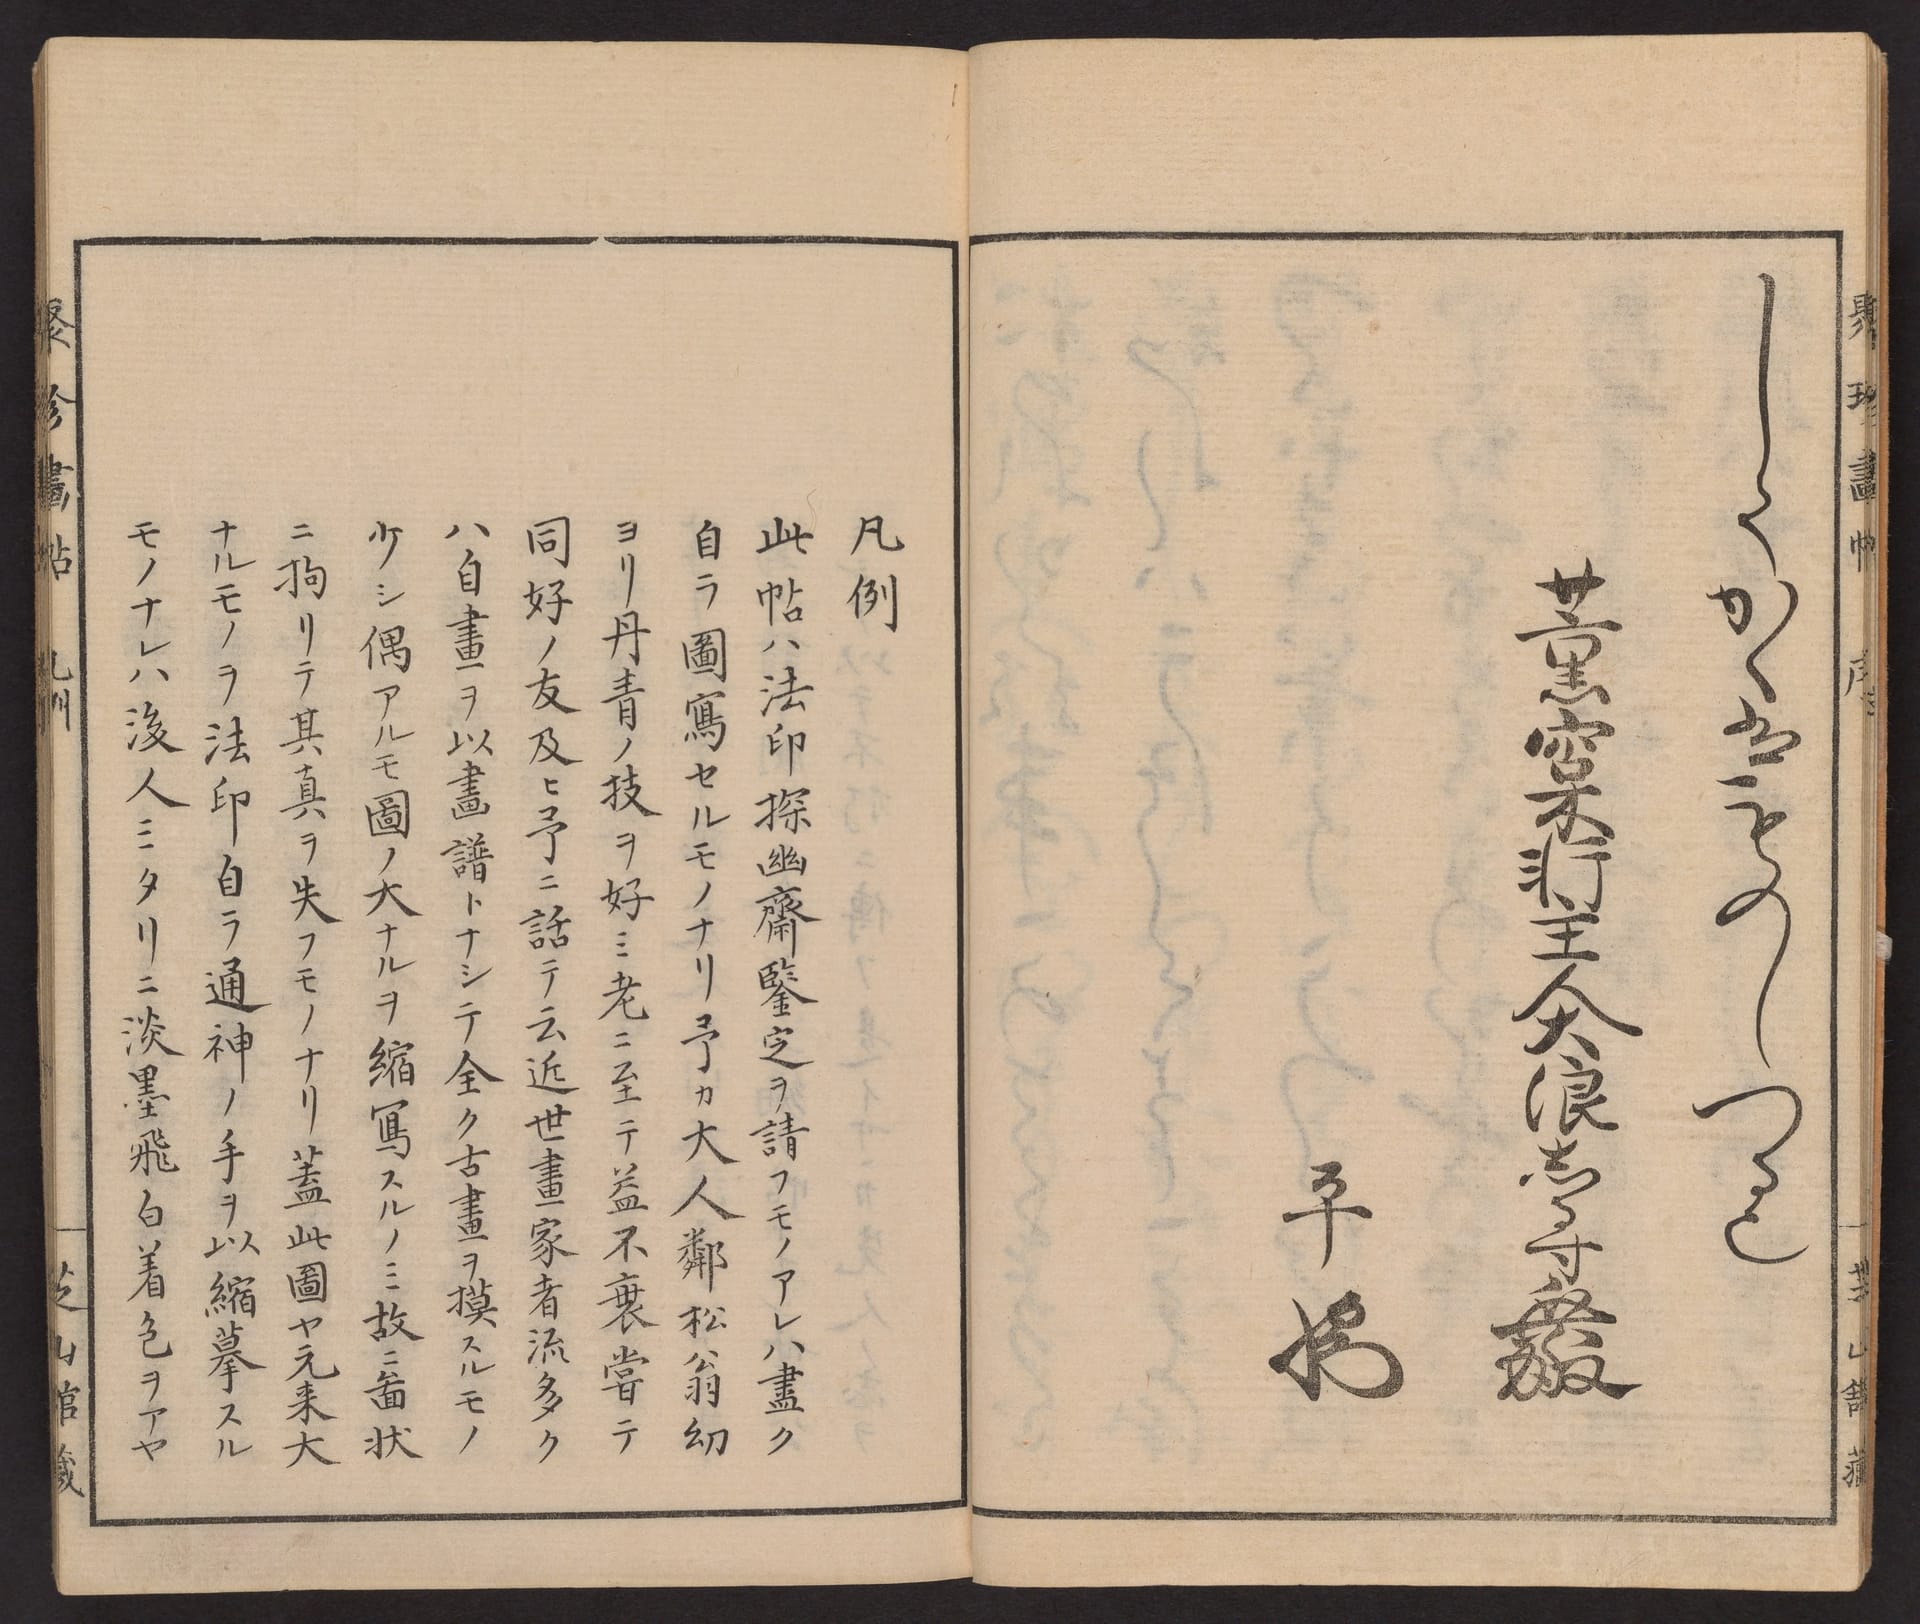 聚珍畫帖
序
芝山館藏
しくかくはものしつると
平
凡例
此帖ハ法印探幽齋鑒定ヲ請フモノアレハ盡ク
自ラ圖寫セルモノナリ予カ大人鄰松翁幼
ヨリ丹青ノ技ヲ好ミ老ニ至テ益不衰嘗テ
同好ノ友及ヒ予ニ話テ云近世畫家者流多ク
ハ自畫ヲ以畫譜トナシテ全ク古畫ヲ摸スルモノ
少シ偶アルモ圖ノ大ナルヲ縮寫スルノミ故ニ啚状
ニ拘リテ其真ヲ失フモノナリ蓋此圖ヤ元来大
ナルモノヲ法印自ラ通神ノ手ヲ以縮摹スル
モノナレハ後人ミタリニ淡墨飛白着色ヲアヤ
聚珍畫帖
凡例
一
芝山館藏